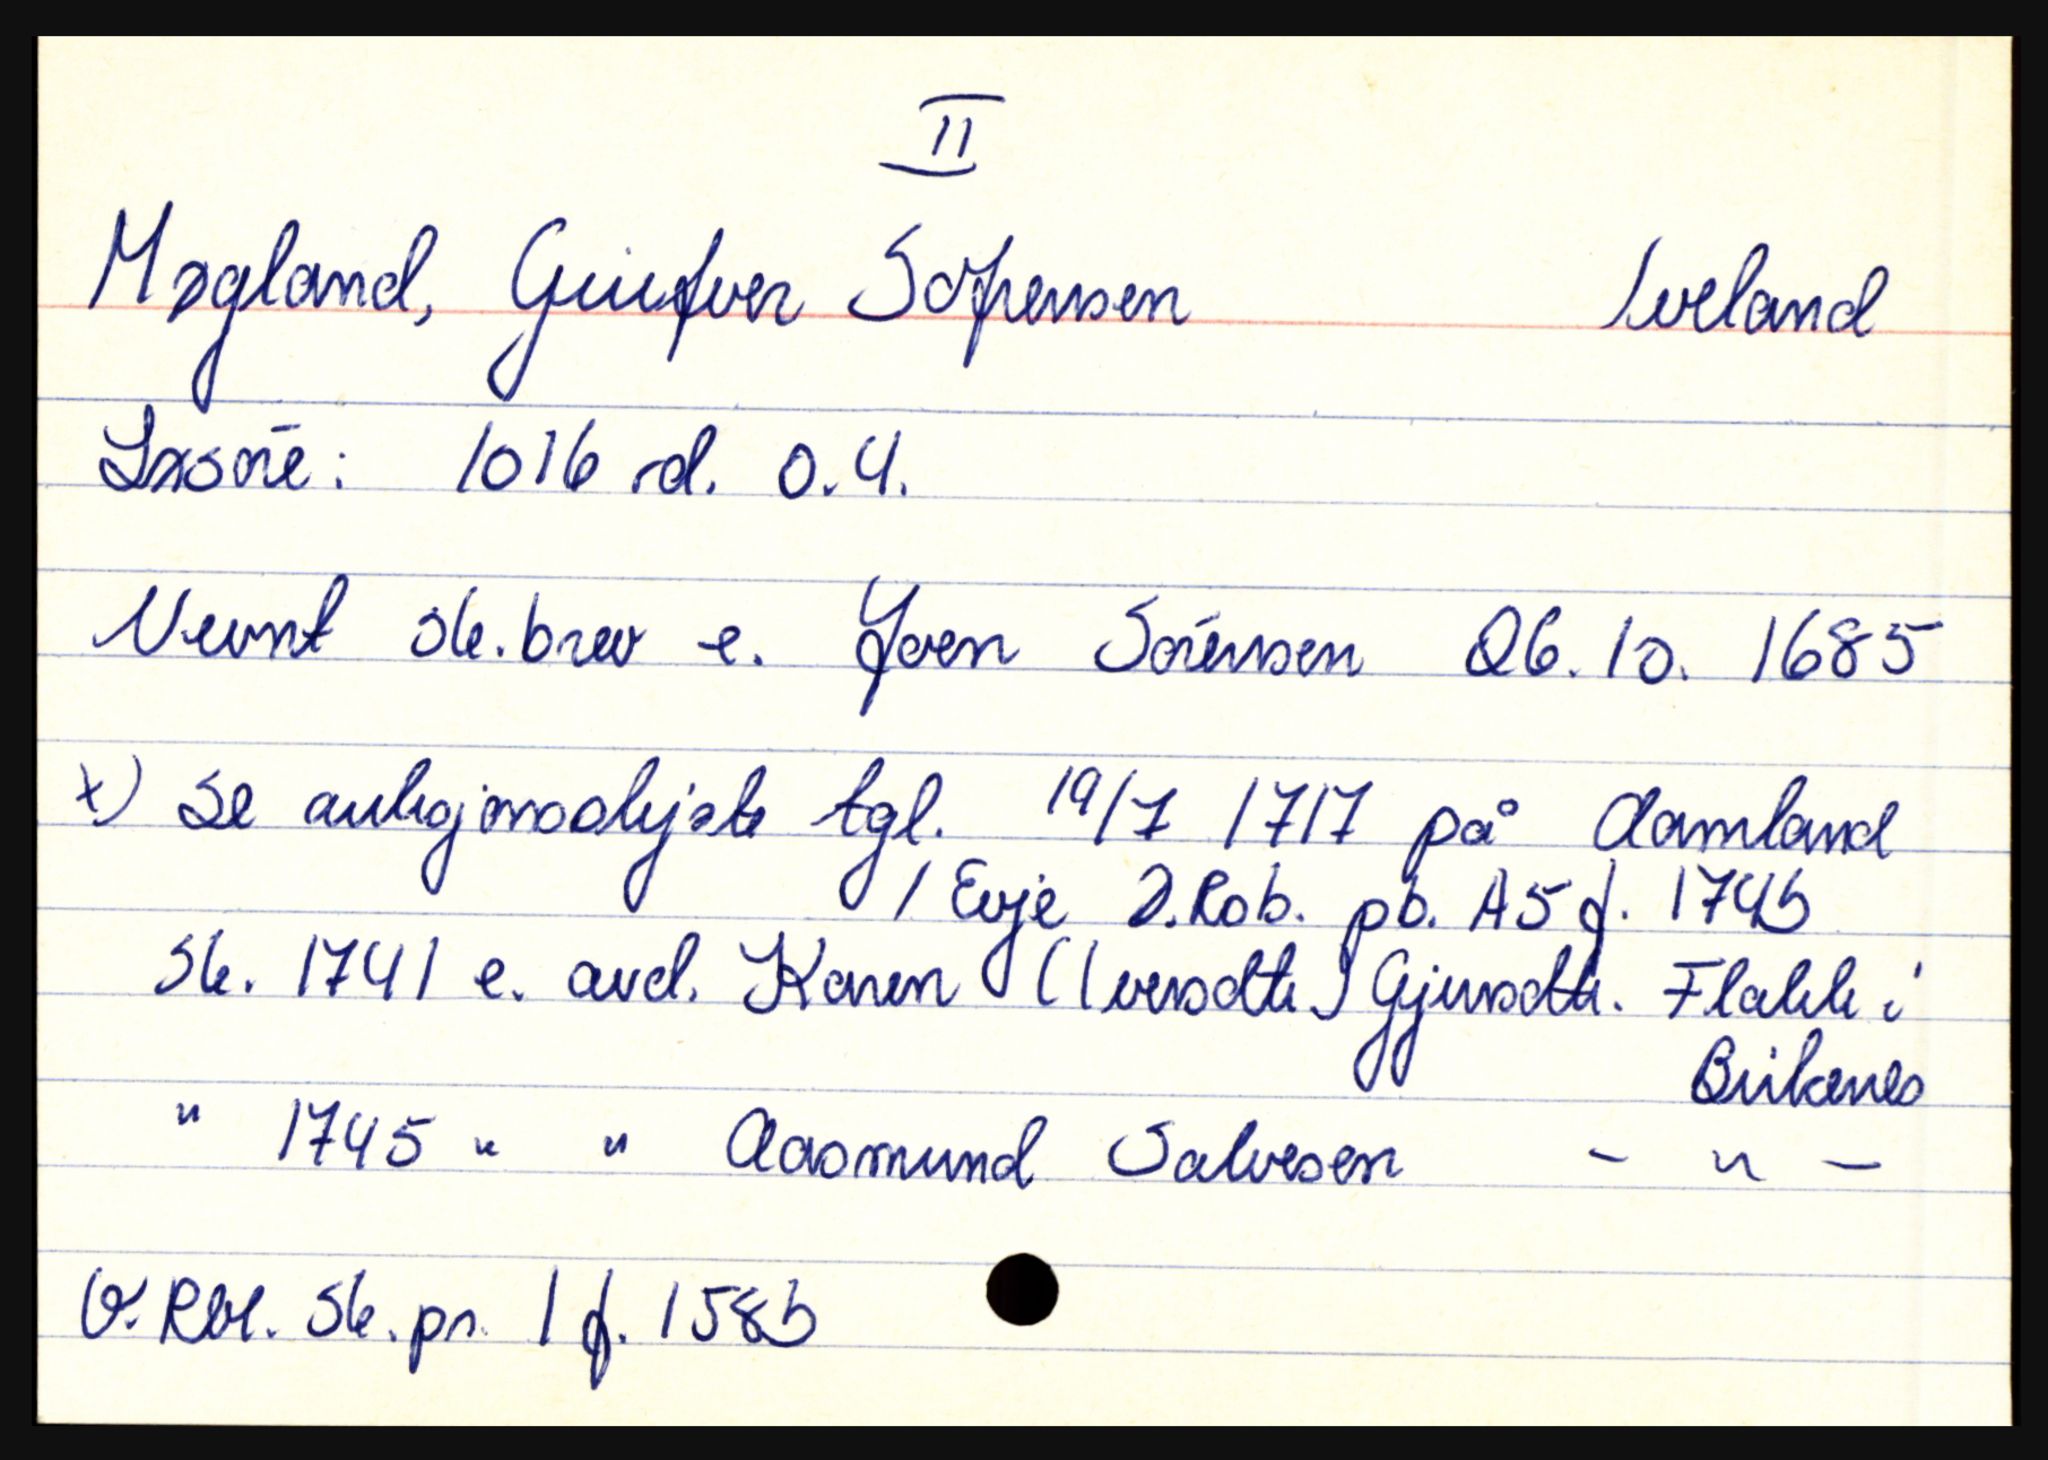 II
Mægland, Giufver Søfrensen Iveland
Løsøre: 1016 rd. 0.4.
Nevnt sk.brev e. Yven Sørensen 26.10. 1685
x) Se auksjonsskjøte tgl. 19/7 1717 på Aamland
/ Evje D.Rob. pb. A5 f. 174b
Sk. 1741 e. avd. Karen (Iversdtr.) Gjursdtr. Flakk i
Birkenes
" 1745 " " Aasmund Salvesen - " -
V. Rbl. Sk.pr. 1 f. 158b